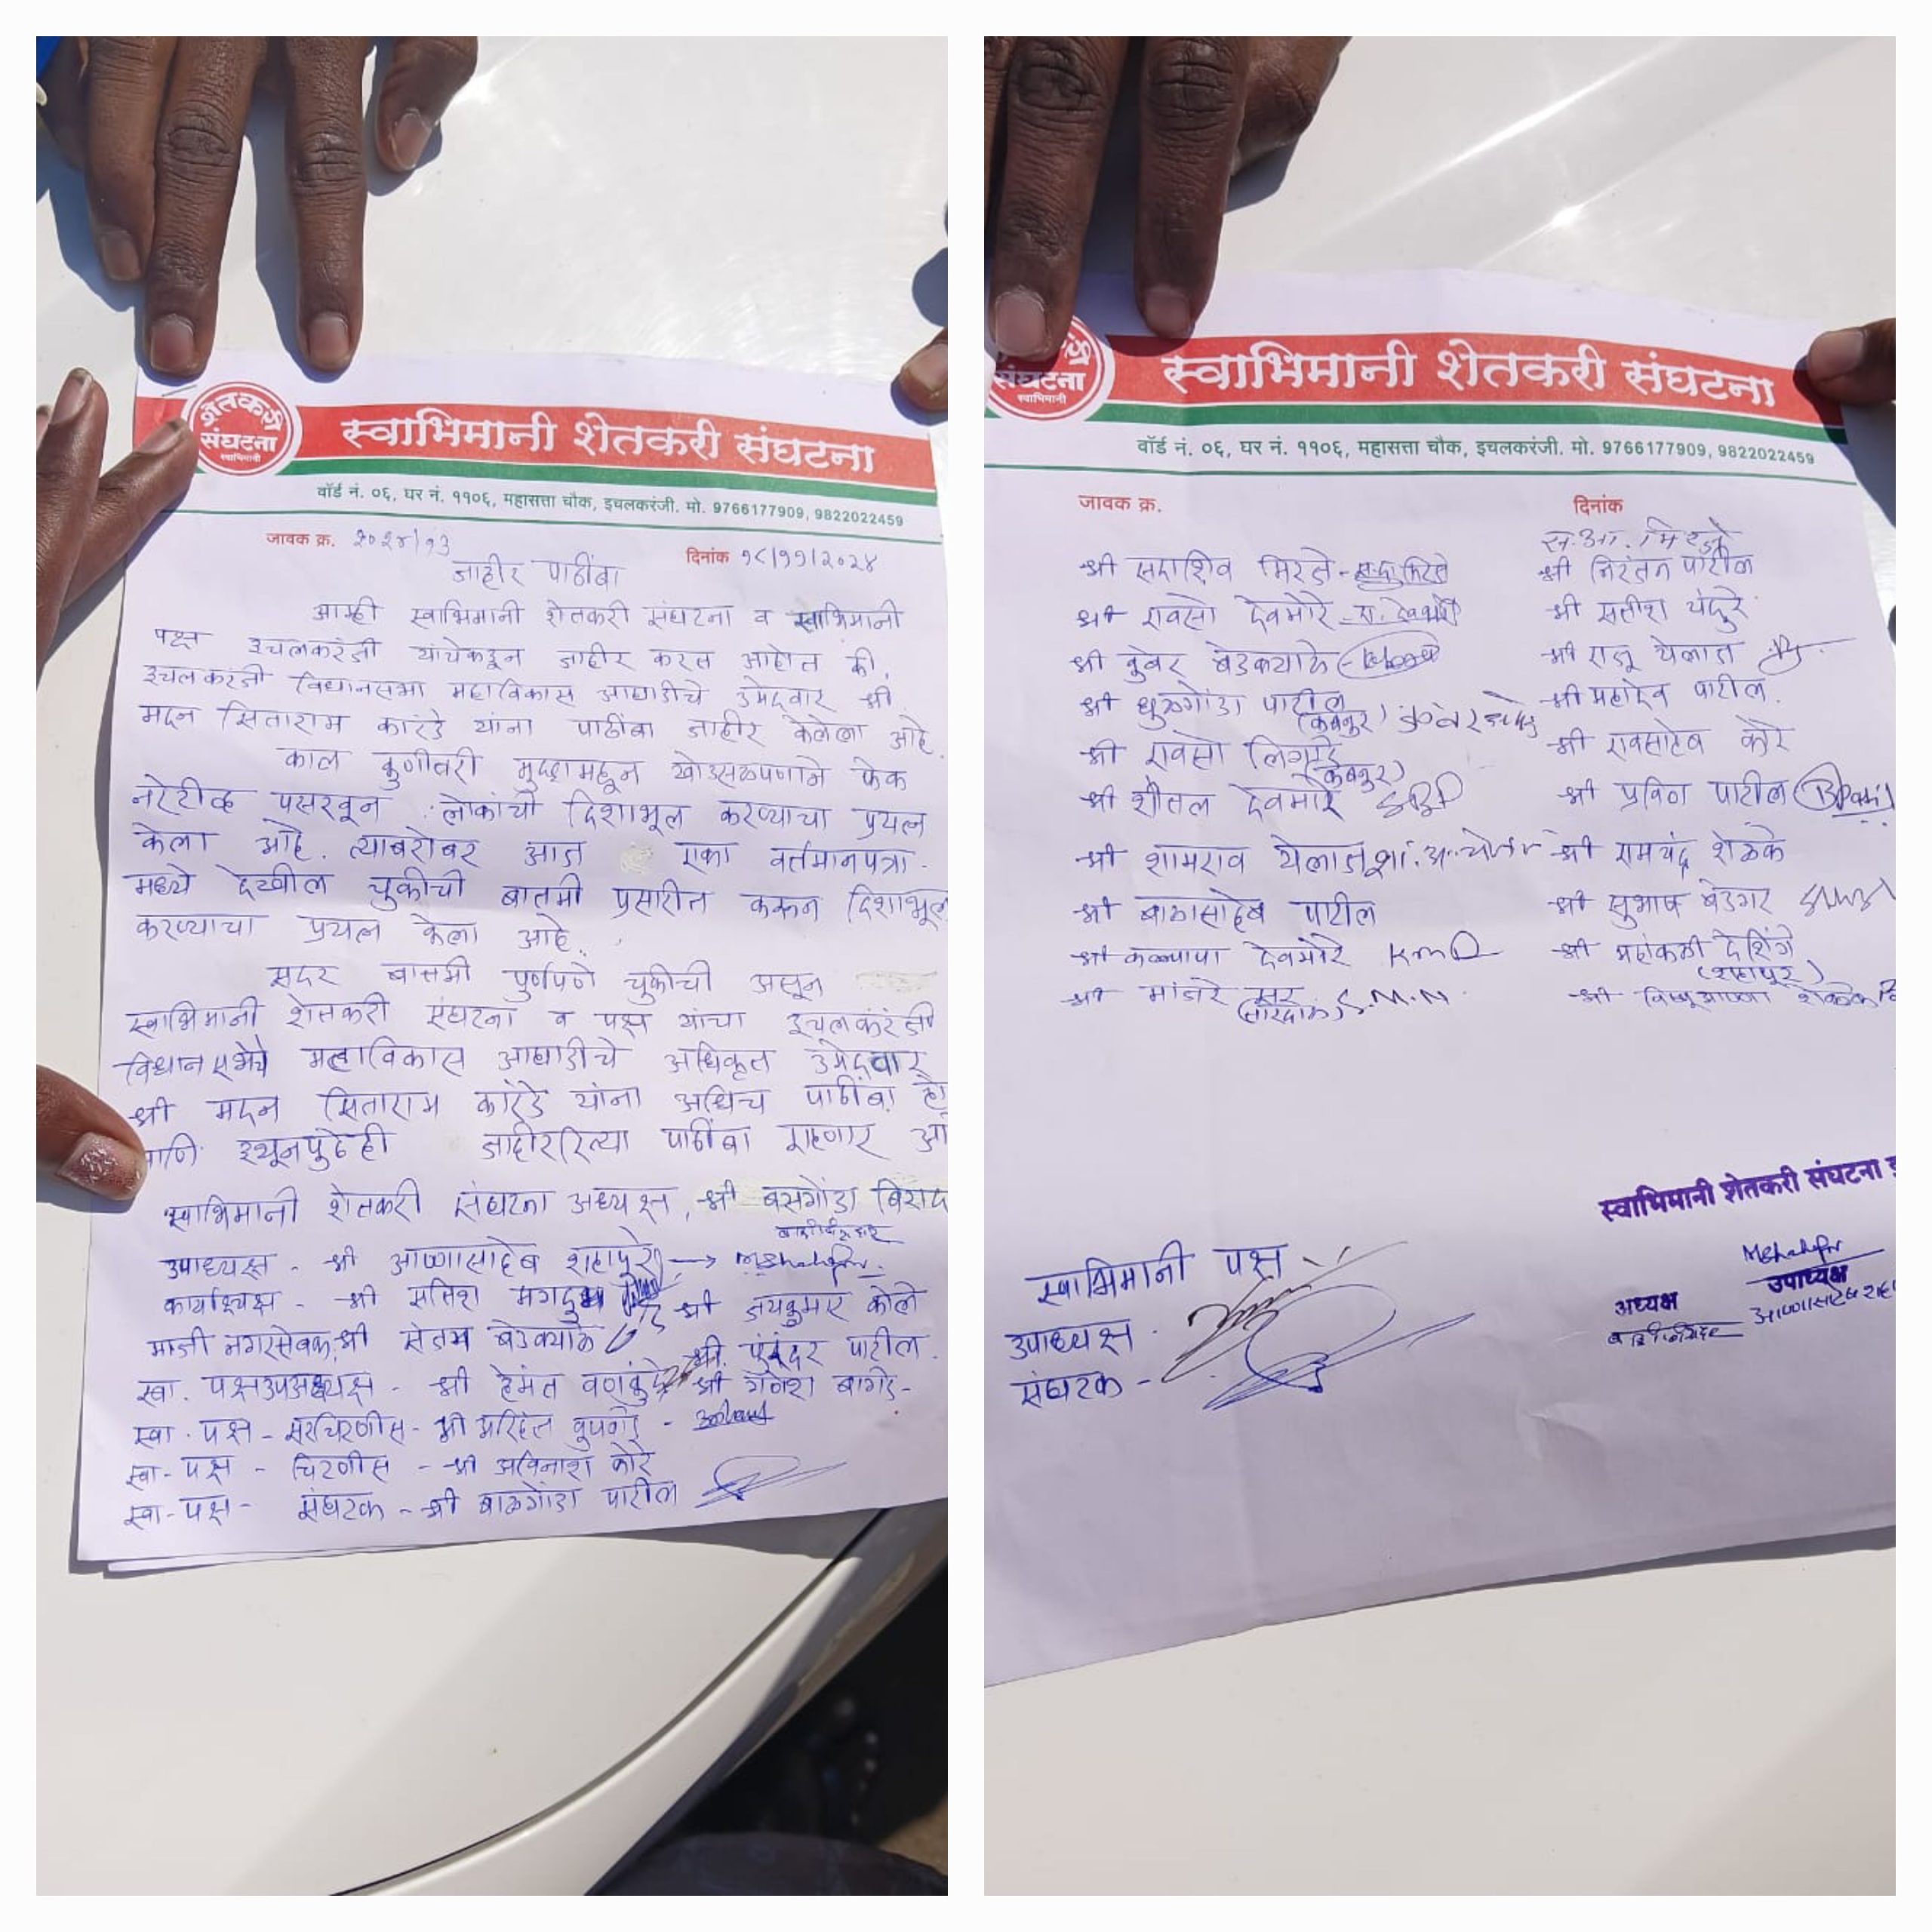 शेतकरी
संघटना
स्वाभिमानी
स्वाभिमानी शेतकरी संघटना
वॉर्ड नं. ०६, घर नं. ११०६, महासत्ता चौक, इचलकरंजी. मो. 9766177909, 9822022459
जावक क्र. २०२४/१३
दिनांक १८/११/२०२४
जाहीर पाठींबा
आम्ही स्वाभिमानी शेतकरी संघटना व स्वाभिमानी
पक्ष इचलकरंजी यांचेकडून जाहीर करत आहोत की,
इचलकरंजी विधानसभा महाविकास आघाडीचे उमेदवार श्री
मदन सिताराम कारंडे यांना पाठींबा जाहीर केलेला आहे.
काल कुणीतरी मुद्दामहून खोडसळपणाने फेक
नरेटीव्ह पसरवून लोकांची दिशाभूल करण्याचा प्रयत्न
केला आहे. त्याबरोबर आज एका वर्तमानपत्रा-
मध्ये देखील चुकीची बातमी प्रसारीत करून दिशाभूल
करण्याचा प्रयत्न केला आहे.
सदर बातमी पुर्णपणे चुकीची असून
स्वाभिमानी शेतकरी संघटना व पक्ष यांचा इचलकरंजी
विधानसभेचे महाविकास आघाडीचे अधिकृत उमेदवार
श्री मदन सिताराम कारंडे यांना पाठींबा
इथूनपुढेही जाहीररित्या पाठींबा राहणार
स्वाभिमानी शेतकरी संघटना अध्यक्ष, श्री बसगोंडा
उपाध्यक्ष - श्री आण्णासाहेब शहापुरे →
कार्याध्यक्ष - श्री सतिश मगदुम श्री जयकुमार कोले
माजी नगरसेवक, श्री बेडक्याळे श्री. पाटील
स्वा. पक्ष उपअध्यक्ष - श्री हेमंत वणकुंद्रे श्री गणेश बागडे-
स्वा. पक्ष - सरचिटणीस - श्री
स्वा-पक्ष - चिटणीस - श्री अविनाश कोरे
स्वा-पक्ष - संघटक - श्री बाळगोंडा पाटील
संघटना
स्वाभिमानी
स्वाभिमानी शेतकरी संघटना
वॉर्ड नं. ०६, घर नं. ११०६, महासत्ता चौक, इचलकरंजी. मो. 9766177909, 9822022459
जावक क्र.
दिनांक
श्री सदाशिव मिरजे
श्री निरंतन पाटील
श्री रावसो देवमोरे
श्री सतीश चंदुरे
श्री कुबेर बेडक्याळे
श्री राजू येलाज
श्री धुळगोंडा पाटील
(कबनुर)
श्री महादेव पाटील.
श्री रावसो लिगाडे
(कबनुर)
श्री रावसाहेब कोरे
श्री शीतल देवमोरे
श्री प्रविण पाटील
श्री शामराव येलाज
श्री रामचंद्र शेळके
श्री बाळासाहेब पाटील
श्री सुभाष बेडगर
श्री कल्लाप्पा देवमोरे
श्री महांकाळी देशिंगे
(शहापूर)
श्री मांजरे सर
S.M.M.
श्री विष्णू आण्णा शेळके
स्वाभिमानी शेतकरी संघटना
स्वाभिमानी पक्ष
उपाध्यक्ष
अध्यक्ष
उपाध्यक्ष
संघटक -